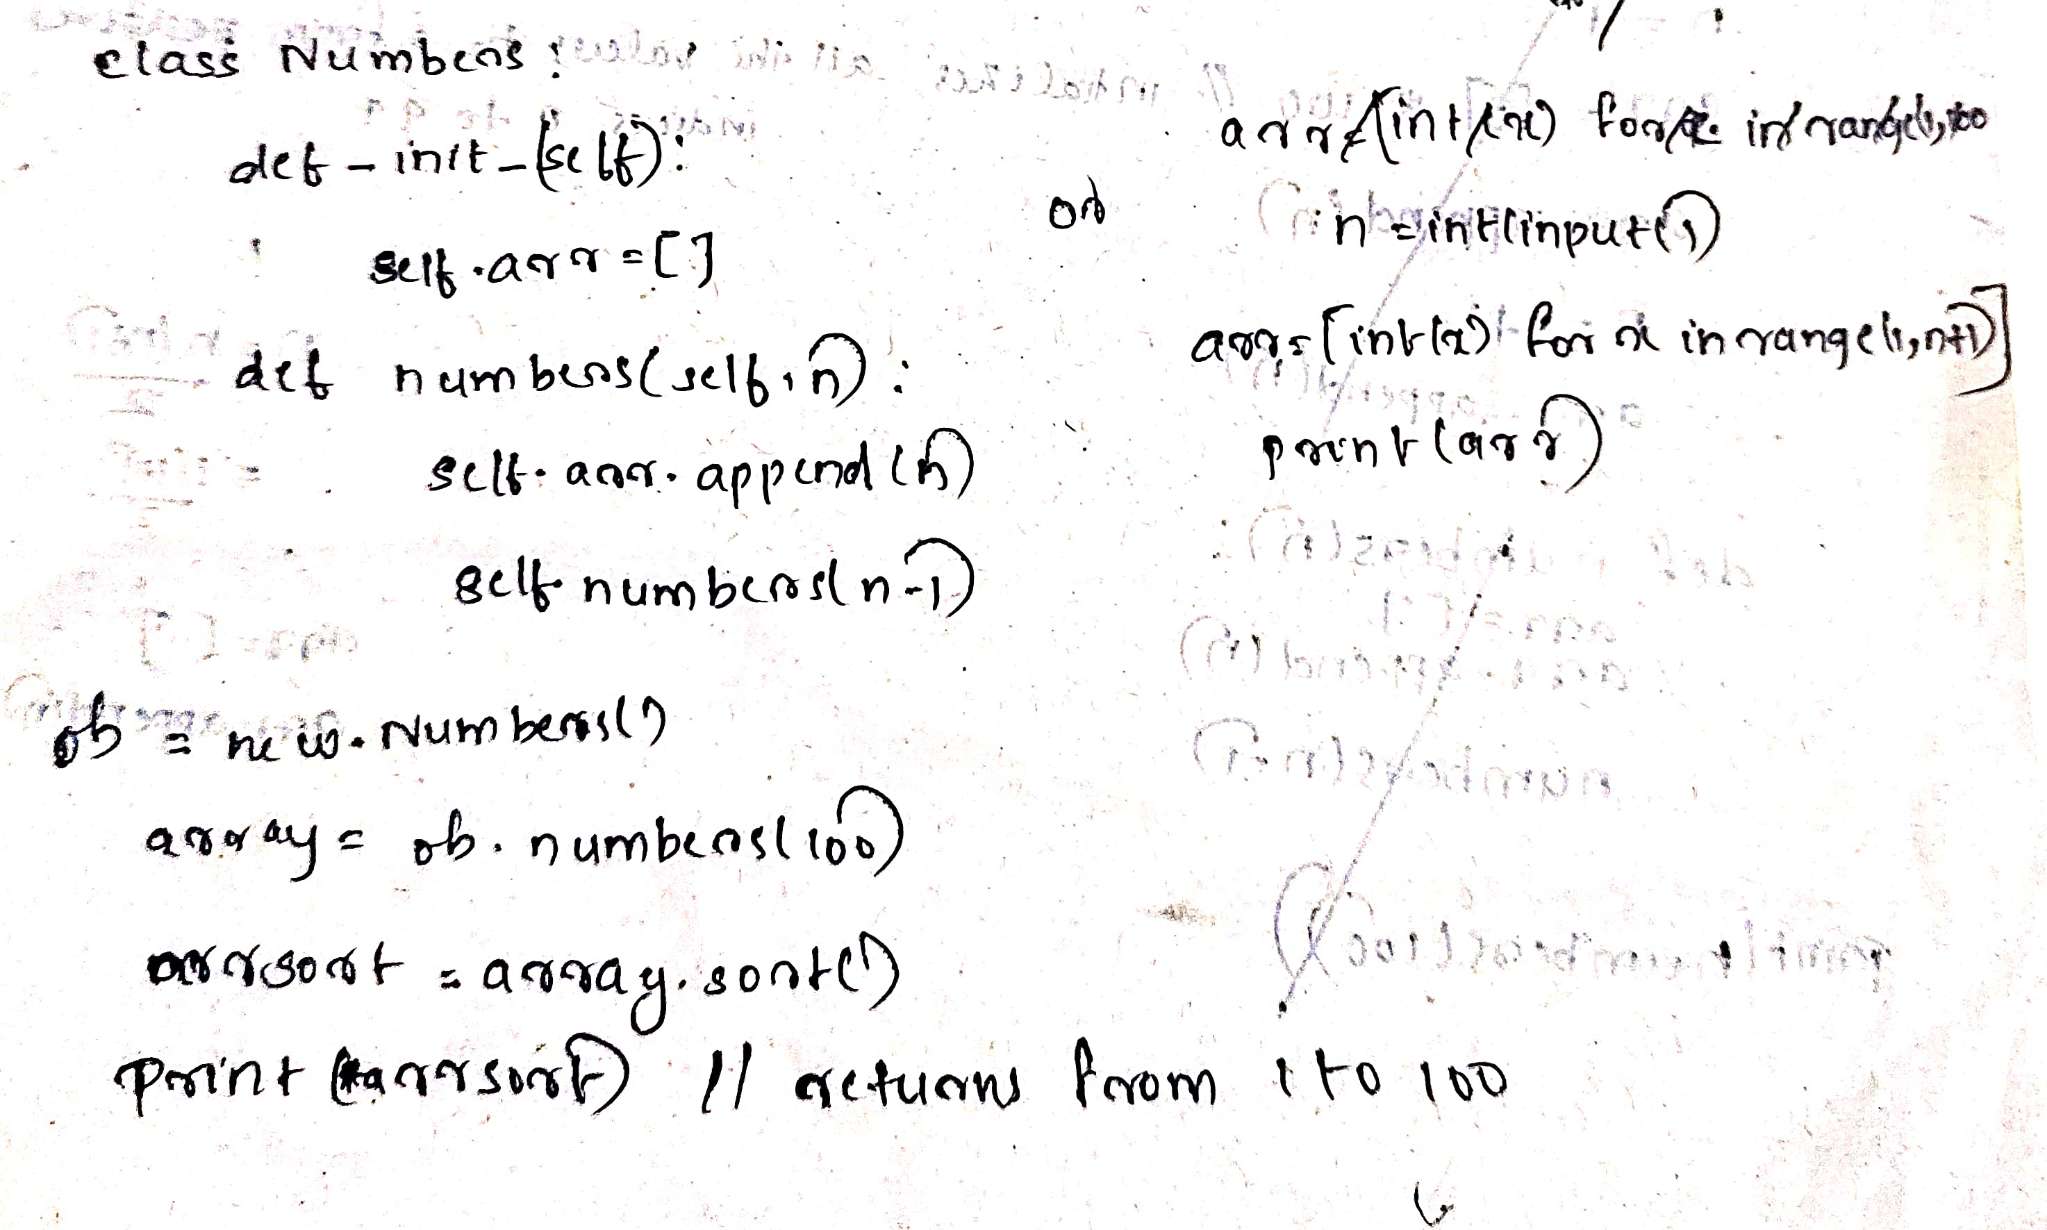 class Numbers:
def _init_(self):
self.arr=[]
def numbers(self,n):
self.arr.append(n)
self.numbers(n-1)
ob = new.Numbers()
array = ob.numbers(100)
arrsort = array.sort()
print(*arrsort) // returns from 1 to 100
or
n = int(input())
arr=[int(x) for x in range(1,n+1)]
print(arr)